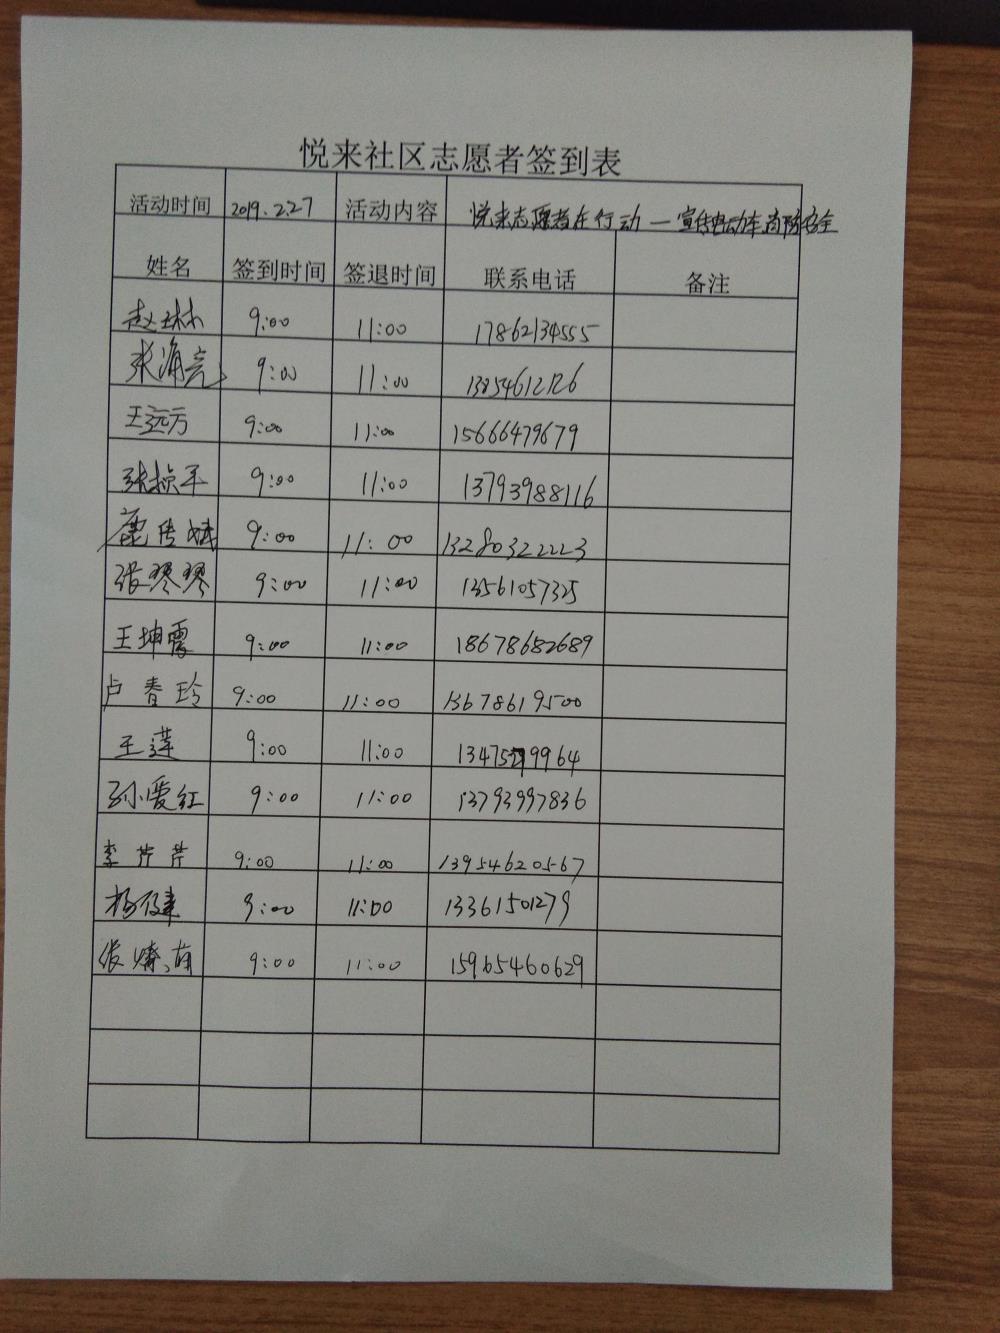 悦来社区志愿者签到表
活动时间 2019.2.27 活动内容 悦来志愿者在行动—宣传电动车消防安全
姓名 签到时间 签退时间 联系电话 备注
赵琳 9:00 11:00 17862134555
张海亮 9:00 11:00
王远方 9:00 11:00 15666479679
张桢平 9:00 11:00 13793988116
9:00 11:00 13280322223
张琴琴 9:00 11:00 13561057325
王坤霞 9:00 11:00 18678682689
卢春玲 9:00 11:00 13678619500
王莲 9:00 11:00
孙爱红 9:00 11:00 13793997836
李芹芹 9:00 11:00 13954620567
杨健 9:00 11:00 13361501279
张 9:00 11:00 15965460629